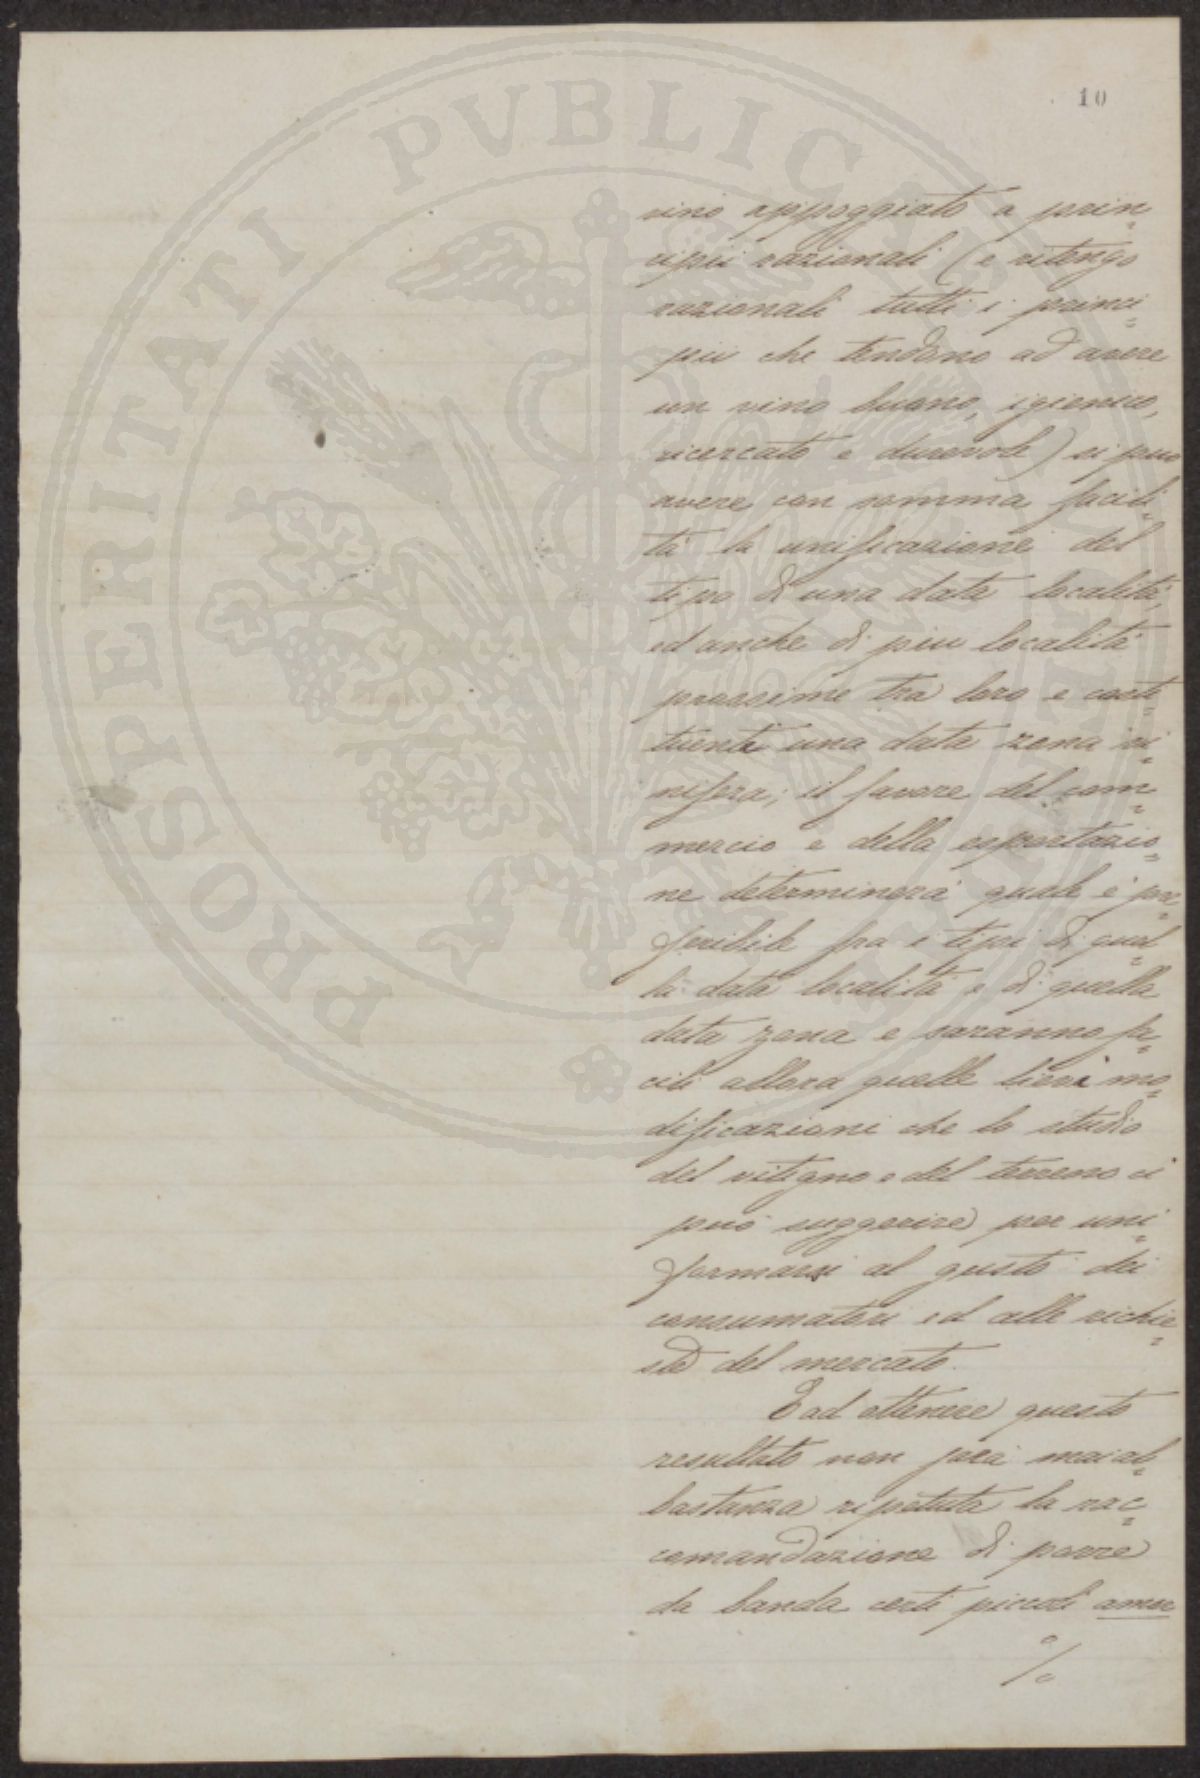 10
PROSPERITATI PVBLICAE
vino appoggiato a prin=
cipii razionali (e ritengo
razionali tutti i princi=
pii che tendono ad avere
un vino buono, igienico,
ricercato e durevole) si può
avere con somma facili=
tà la unificazione del
tipo di una data località,
ed anche di più località
prossime tra loro e costi
tuenti una data zona vi=
nifera; il favore del com=
mercio e della esportazio=
ne determinerà quale è pre=
feribile fra i tipi di quel=
la data località e di quella
data zona e saranno fa=
cili allora quelle lievi mo=
dificazioni che lo studio
del vitigno e del terreno ci
può suggerire per uni=
formarsi al gusto dei
consumatori ed alle richie=
ste del mercato.
E ad ottenere questo
resultato non sarà mai ab=
bastanza ripetuta la rac=
comandazione di porre
da banda certi piccoli amor
%